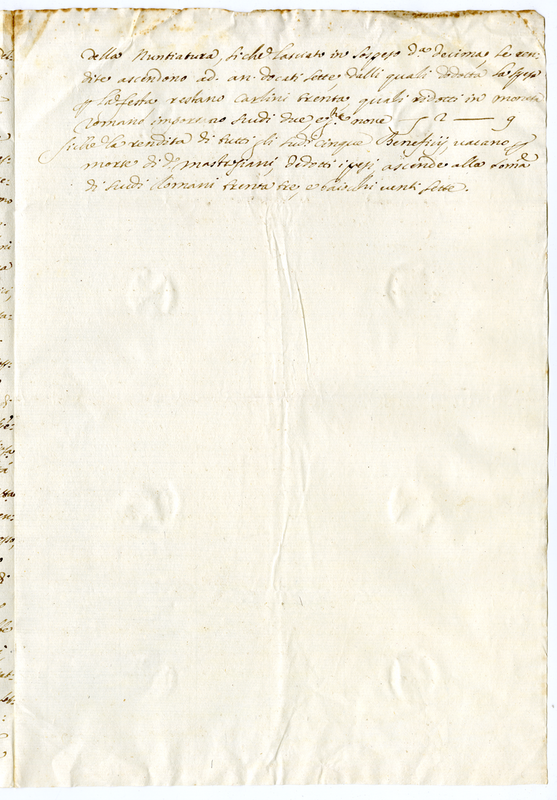 della Nuntiatura, siche lasciato in sospeso d.ª decima le ren=
dite ascendono ad an. docati sette, dalli quali dedotta la spesa
p la festa restano Carlini trenta, quali ridotti in moneta
Romana importano scudi due e nove 2 — 9
Siche la rendita di tutti li sud.ⁱ cinque Beneficij, vacano p
morte di d.º Mastrogiani, dedotti i pesi ascende alla somª
di scudi Romani trenta tre, e baiochi venti sette.